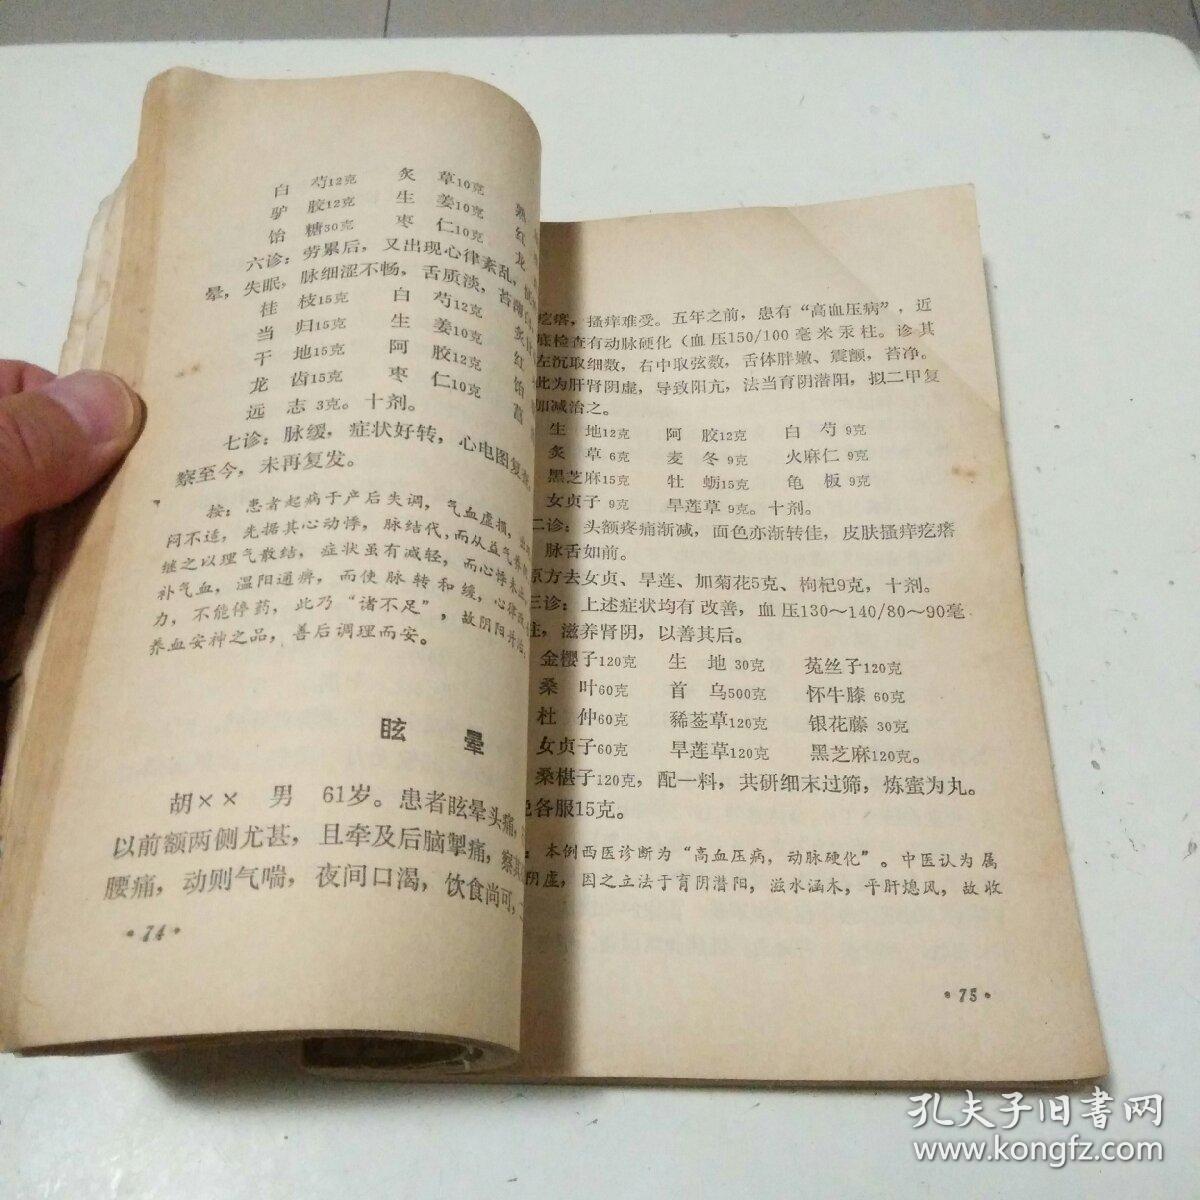 白 芍12克 炙 草10克
驴 胶12克 生 姜10克 熟
饴 糖30克 枣 仁10克 红
六诊：劳累后，又出现心律紊乱，
晕，失眠，脉细涩不畅，舌质淡，苔薄
桂 枝15克 白 芍12克
当 归15克 生 姜10克 炙
干 地15克 阿 胶12克 红
龙 齿15克 枣 仁10克 饴
远 志 3克。十剂。
七诊：脉缓，症状好转，心电图复查
察至今，未再复发。
按：患者起病于产后失调，气血虚损，
闷不适，先据其心动悸，脉结代，而从益气养
继之以理气散结，症状虽有减轻，而心悸未
补气血，温阳通痹，而使脉转和缓，心律
力，不能停药，此乃“诸不足”，故阴阳并
养血安神之品，善后调理而安。
眩 晕
胡×× 男 61岁。患者眩晕头痛，
以前额两侧尤甚，且牵及后脑掣痛，察其
腰痛，动则气喘，夜间口渴，饮食尚可，
·74·
疙瘩，搔痒难受。五年之前，患有“高血压病”，近
底检查有动脉硬化（血压150/100毫米汞柱。诊其
左沉取细数，右中取弦数，舌体胖嫩、震颤，苔净。
此为肝肾阴虚，导致阳亢，法当育阴潜阳，拟二甲复
加减治之。
生 地12克 阿 胶12克 白 芍 9克
炙 草 6克 麦 冬 9克 火麻仁 9克
黑芝麻15克 牡 蛎15克 龟 板 9克
女贞子 9克 旱莲草 9克。十剂。
二诊：头额疼痛渐减，面色亦渐转佳，皮肤搔痒疙瘩
脉舌如前。
原方去女贞、旱莲、加菊花5克、枸杞9克，十剂。
三诊：上述症状均有改善，血压130～140/80～90毫
柱，滋养肾阴，以善其后。
金樱子120克 生 地 30克 菟丝子120克
桑 叶60克 首 乌500克 怀牛膝 60克
杜 仲60克 豨莶草120克 银花藤 30克
女贞子60克 旱莲草120克 黑芝麻120克。
桑椹子120克，配一料，共研细末过筛，炼蜜为丸。
晚各服15克。
：本例西医诊断为“高血压病，动脉硬化”。中医认为属
阴虚，因之立法于育阴潜阳，滋水涵木，平肝熄风，故收
·75·
孔夫子旧书网
www.kongfz.com